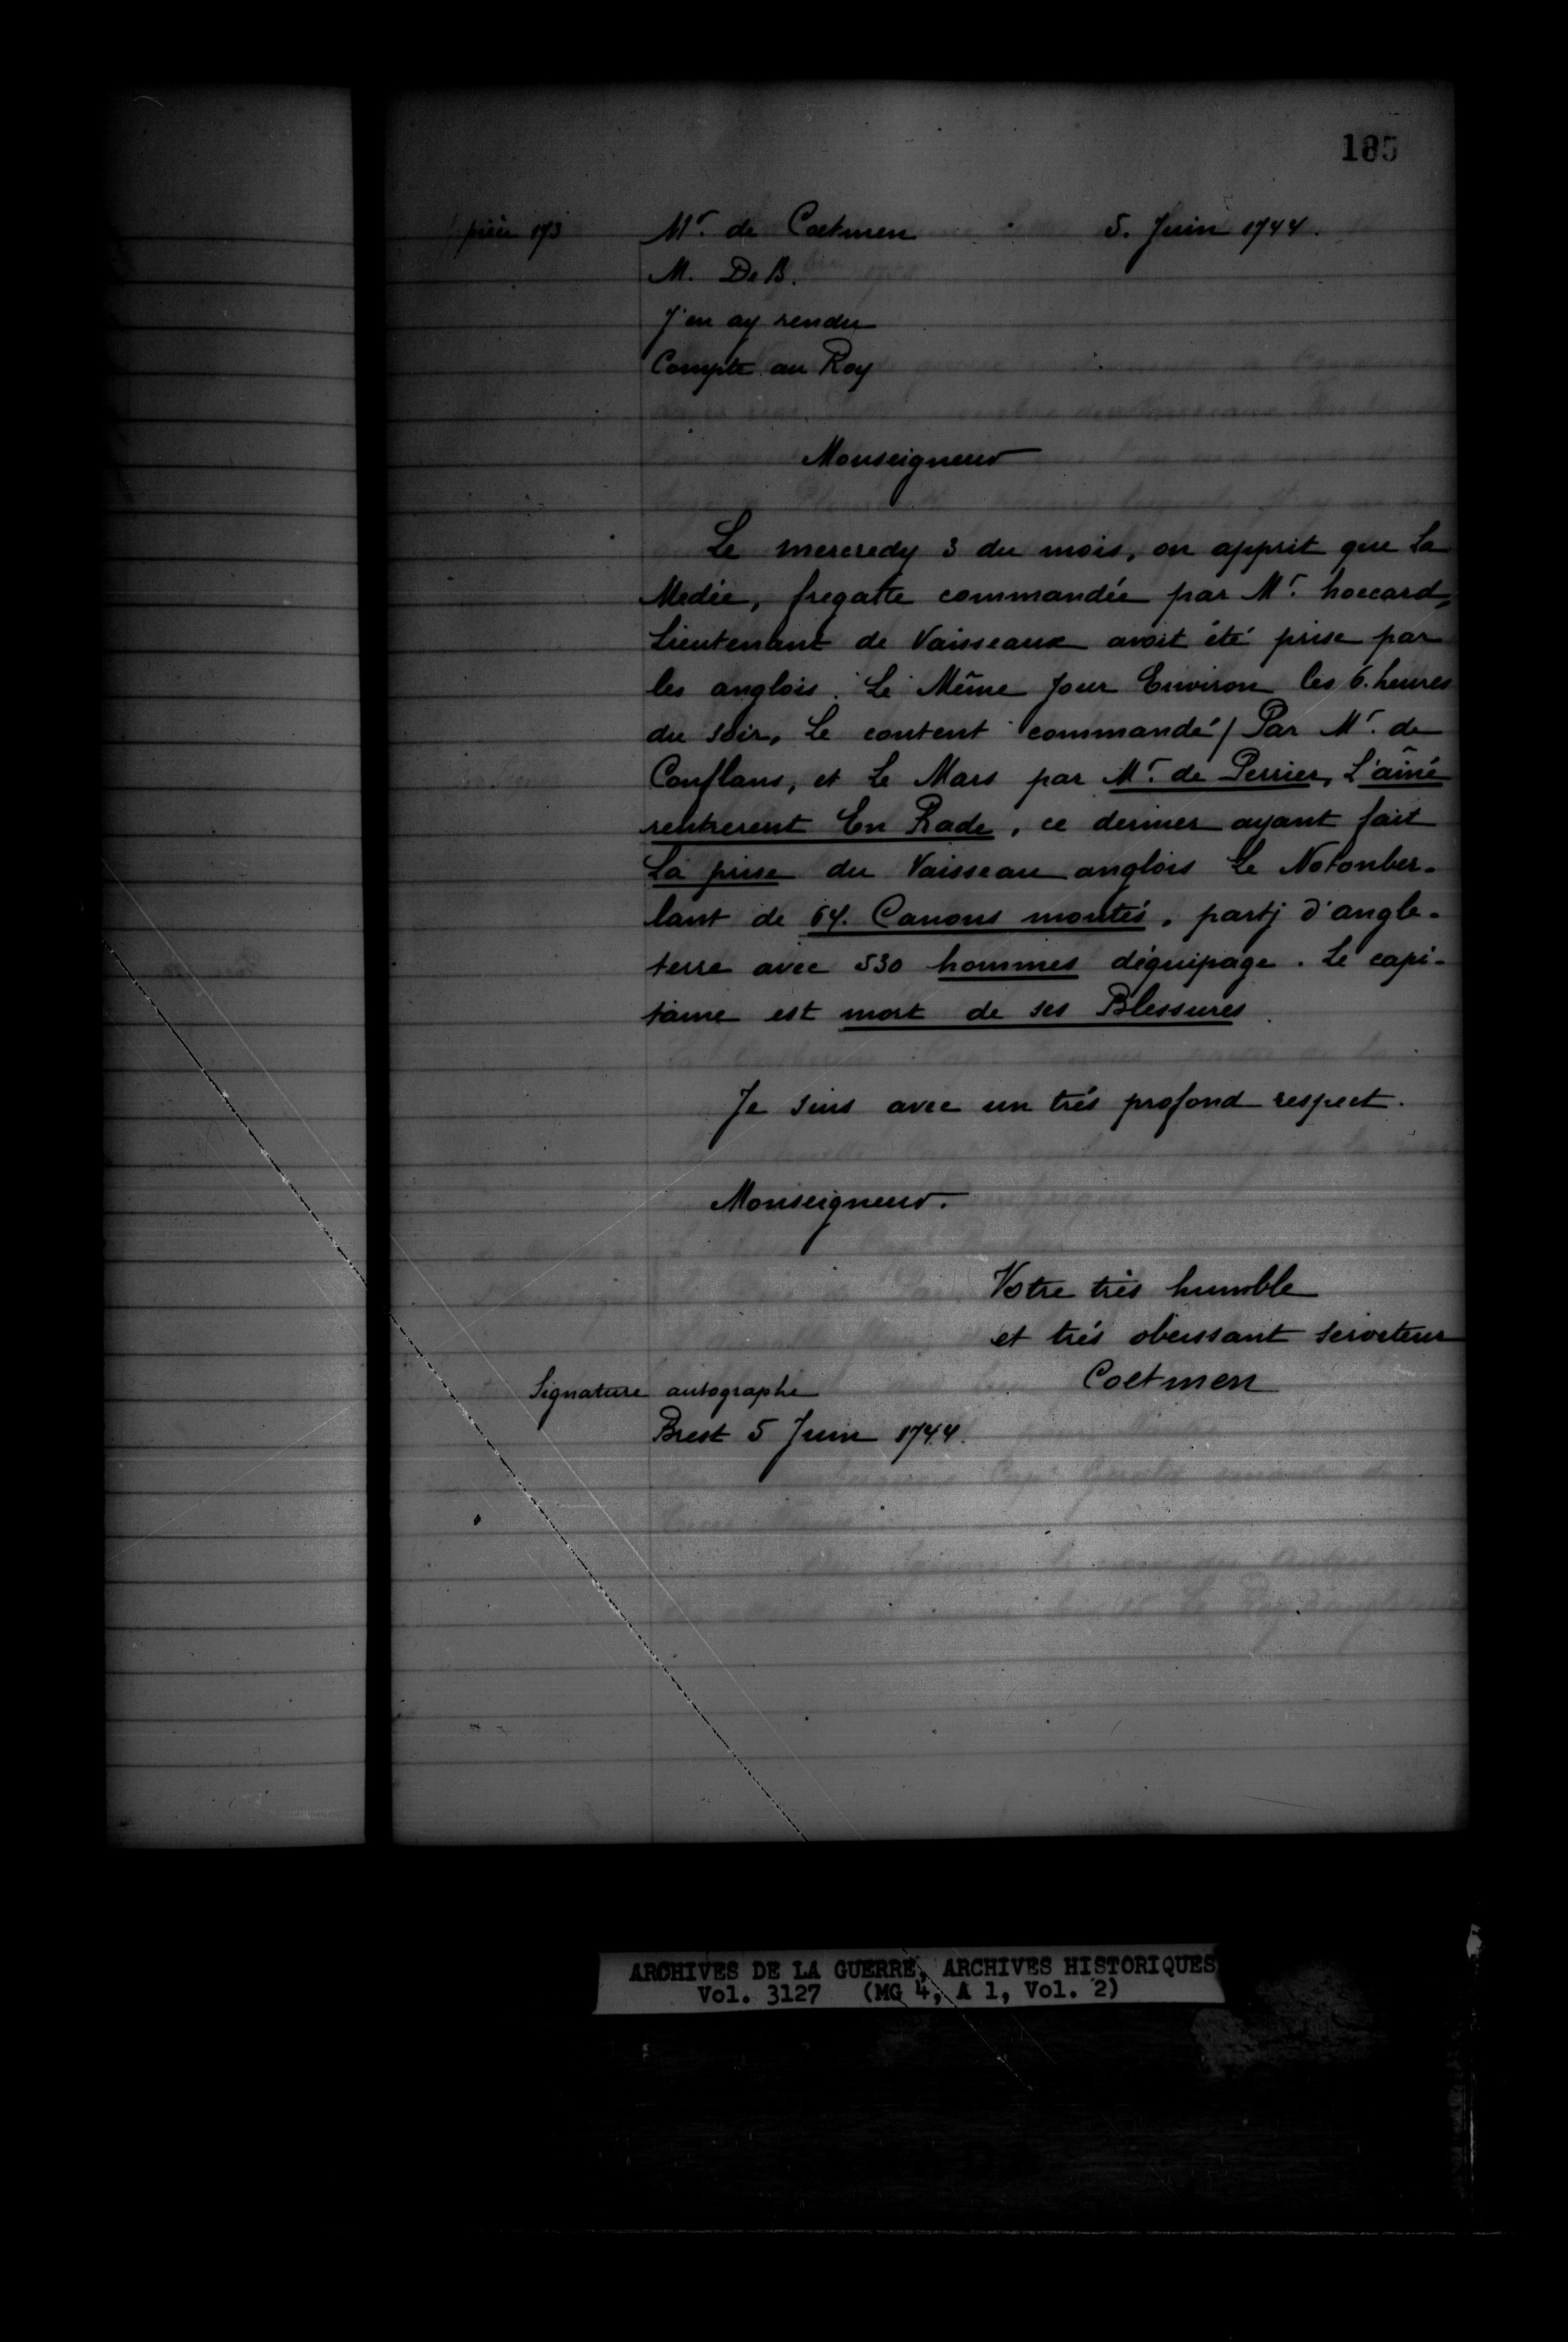 185
pièce 173
Mr. de Coetmen 5. Juin 1744.
M. De B.
J'en ay rendu
Compte au Roy
Monseigneur
Le mercredy 3 du mois, on apprit que La
Medée, fregatte commandée par Mr. hoccard,
Lieutenant de Vaisseaux avoit été prise par
les anglois. Le Même Jour Environ les 6. heures
du soir, Le content commandé/ Par Mr. de
Conflans, et Le Mars par Mr. de Perrier, L'aîné
rentrerent En Rade, ce dernier ayant fait
La prise du Vaisseau anglois Le Notonber-
lant de 64. Canons montés, partj d'angle-
terre avec 530 hommes déquipage. Le capi-
taine est mort de ses Blessures.
Je suis avec un trés profond respect.
Monseigneur.
Votre trés humble
et trés obeissant serviteur
Coetmen
Signature autographe
Brest 5 Juin 1744.
ARCHIVES DE LA GUERRE, ARCHIVES HISTORIQUES
Vol. 3127 (MG 4, A 1, Vol. 2)